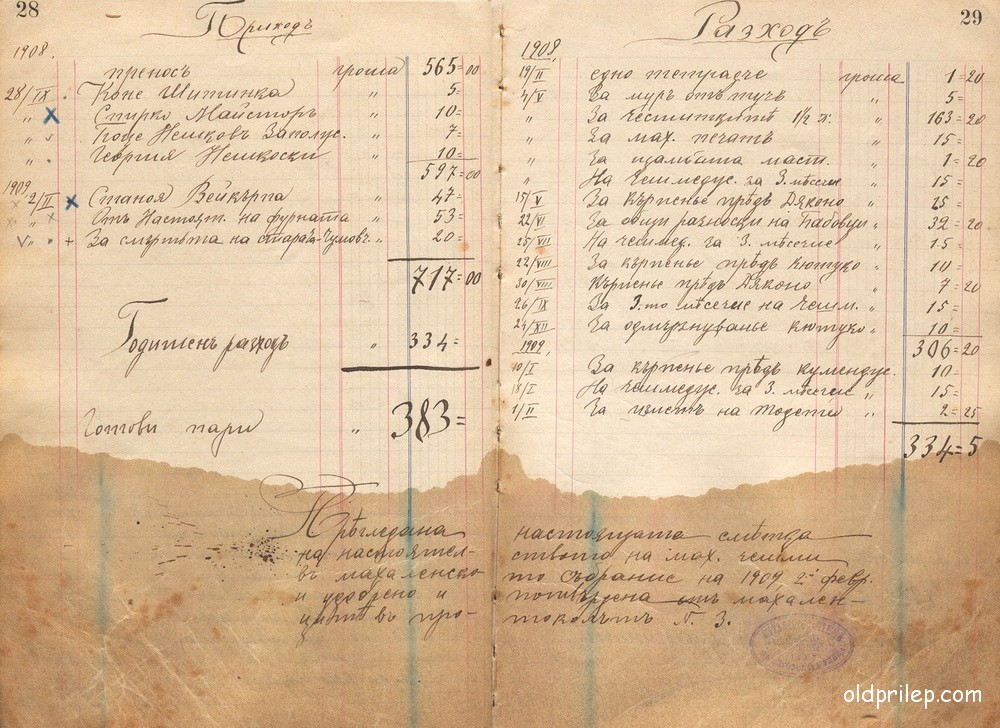 28
Приходъ
1908.
преносъ гроша 565=00
28/IX Коне Шитинка " 5=
" Спирко Майсторъ " 10=
" Ноце Нешковъ " 7=
" Георгия Нешкоски " 10=
597=00
1909 2/II Станоя Вейкърта " 47=
" Отъ Настоят. на фурната " 53=
" + За смъртьта на " 20=
717=00
Годишенъ разходъ " 334=
Готови пари " 383=
Прѣгледана
на настоятел-
въ махаленско
и удобрено и
цитѣ въ про-
29
Разходъ
1908.
19/II едно тетратче гроша 1=20
4/V За муръ отъ тучъ " 5=
" За чешмититѣ 1/2 г. " 163=20
" За мах. печатъ " 15=
" За маст. " 1=20
" На чешмеџус. за 3. мѣсеци 15=
15/V За кърпенье прѣдъ Дяконо " 25=
22/VI За общи разноски на Бабовци " 32=20
25/VII На чешмеџ. за 3. мѣсечие " 15=
22/VIII За кърпенье прѣдъ Кютуко " 10=
30/VIII Кърпенье прѣдъ Дяконо " 7=20
26/IX За 3.то мѣсечие на чешм. " 15=
24/XII За одмързнуванье Кютуко " 10=
306=20
1909.
10/I За кърпенье прѣдъ кумендус. 10=
18/I На чешмеџус. за 3. мѣсечие " 15=
1/II За на Тодета " 2=25
334=5
настоящата смѣтка
ството на мах. чешми
то Събрание на 1909 2й февр.
потвърдена отъ махален-
токолътъ N. 3.
oldprilep.com